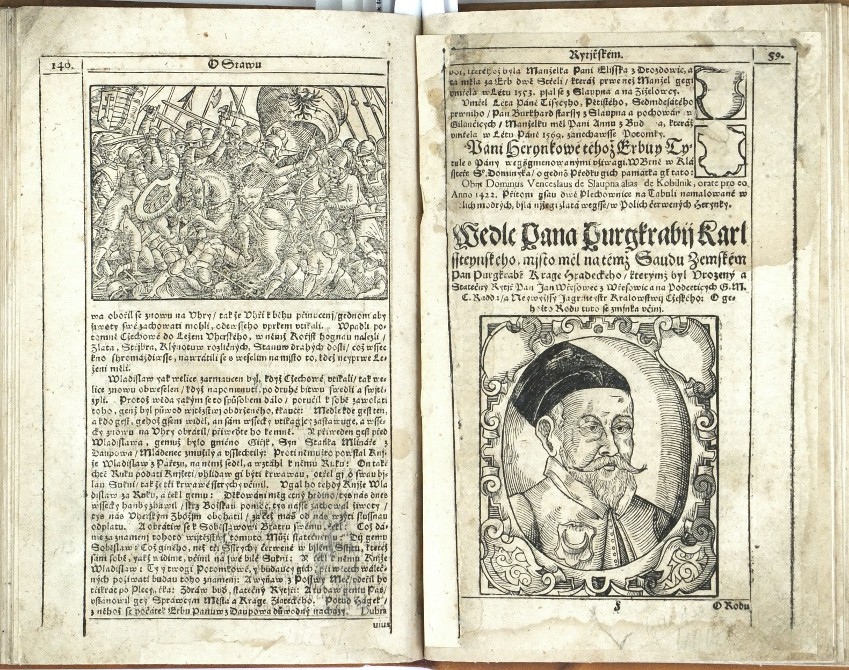 146.
O Stawu
wa obořil se znowu na Uhry / takže Uhři k běhu přinuceni / gednom aby
žiwoty swé zachowati mohli, odtud sseho wprkem utikali. Wpadli po-
tomně Czechowé do Ležení Uherského, w němž Kořist hognau nalezli /
Zlata, Střjbra, Kleynotuw rozličných, Stanuw drahých dosti / což wssec-
kno shromáždiwsse, nawrátili se s weselim na mjsto to, kdež neyprwé Le-
ženi měli.
Wladislaw yak welice zarmaucen byl, když Czechowé utikali / tak we-
lice znowu obweselen / když napomenuti, po druhé bitwu swedli a swjtě-
zyli. Protož wěda yakým se to způsobem dálo / poručil k sobě zawolati
toho, genž byl půwod wjtězstwj obdrženého, řkauce: Medle kde gest ten,
a kdo gest, gehož gsem widěl, an sám wssecky utjkagjcý zastawuge, a wsse-
cky znowu na Uhry obrátil / přiweďte ho ke mně. A přiweden gest před
Wladislawa, gemuž bylo gméno Giřjk, Syn Stańka Mlináře z
Daupowa / Mládenec zmužilý a ussechtilý: Proti němuž to powstal Knj-
že Wladislaw z Pařezu, na němž seděl, a wztáhl k němu Ruku: On také
chtě Ruku podati Knjžeti / uhljdaw gi býti krwawau, otřel gi o swau by-
lau Sukni / tak že čtyři krwawé střychy včinil. Ugal ho tehdy Knjže Wla-
dislaw za Ruku, a řekl gemu: Děkowáni měg ctný hrdino / tys nás dnes
wssecky hanby zbawil / skrz Bůžskau pomoc, tys nasse zachowal žiwoty /
tys nás Uherským Zbožjm obohatil / začež máš od nás wzýti slussnau
odplatu. A obrátiw se k Soběslawowi Bratru swému, řekl: Což dá-
me za znameni tohoto wjtězstwj, tomuto Muži statečnému? Dj gemu
Sobieslaw: Což giného, než tři Sstrychy čerwené w bjlém Sstitu, kteréž
sám sobě, yakž widjme, včinil na swé bjlé Sukni: A řekl k němu Knjže
Wladislaw: Ty y twogi Potomkowé, y buďaucý gich, při wssech wáleč-
ných požjwati budau toho znamenj: A wyňaw z Possvy Meč / udeřil ho
třikrát po Plecy, řka: Zdráw buď, statečný Rytjři: A tu daw gemu Pás,
ustanowil geg Spráwcým Města a Krage Zlateckého. Potud Hágek /
z něhož se počátek Erbu Panuw z Daupowa důwodný nachází. Dubra-
uius
Rytjřském.
59.
byla Manželka Pani Elisska z Drozdowic, a
ta měla za Erb dwě Střely / kteráž prwé než Manžel gegj
umřela w Létu 1553. psal se z Slaupna a na Zižeľowcy.
Umřel Léta Páně Tisycýho, Pětistého, Sedmdesátého
prwnjho / Pan Burkhard starssý z Slaupna a pochowán w
Gilaučicých / Manželku měl Panj Annu z Bud a, kteráž
umřela w Létu Páně 1569. zanechawsse Potomky.
Páni Herynkowé téhož Erbuy Ty-
tule s Pány wegssgmenowanými užiwagj. W Brně w Klá-
ssteře S. Dominyka / o gedné Předku gich památka gest tato:
Obijt Dominus Venceslaus de Slaupna alias de Kobilnik, orate pro eo.
Anno 1422. Přitom gsau dwě Plechownice na Tabuli namalowané w
lich modrých, byla nižegi zlatá wegsse / w Poljch čerwených Herynky.
Wedle Pana Purgkrabij Karl
ssteynského, mjsto měl na témž Saudu Zemském
Pan Purgkrabě Krage Hradeckého / kterýmž byl Urozený a
Statečný Rytjř Pan Jan Wřesowec z Wřesowic a na Podsedicých G. M.
C. Radda / a Neywyšssý Jagrmeistr Kralowstwj Cžeského: O ge-
hožto Rodu tuto se zmjnka činj.
§
O Rodu